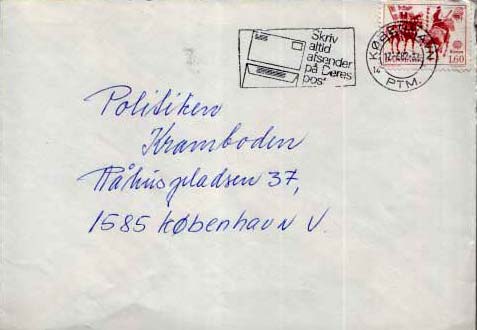 Skriv
altid
afsender
på Deres
post
KØBENHAVN
PTM.
1.60
Politiken
Kramboden
Rådhuspladsen 37,
1585 København V.